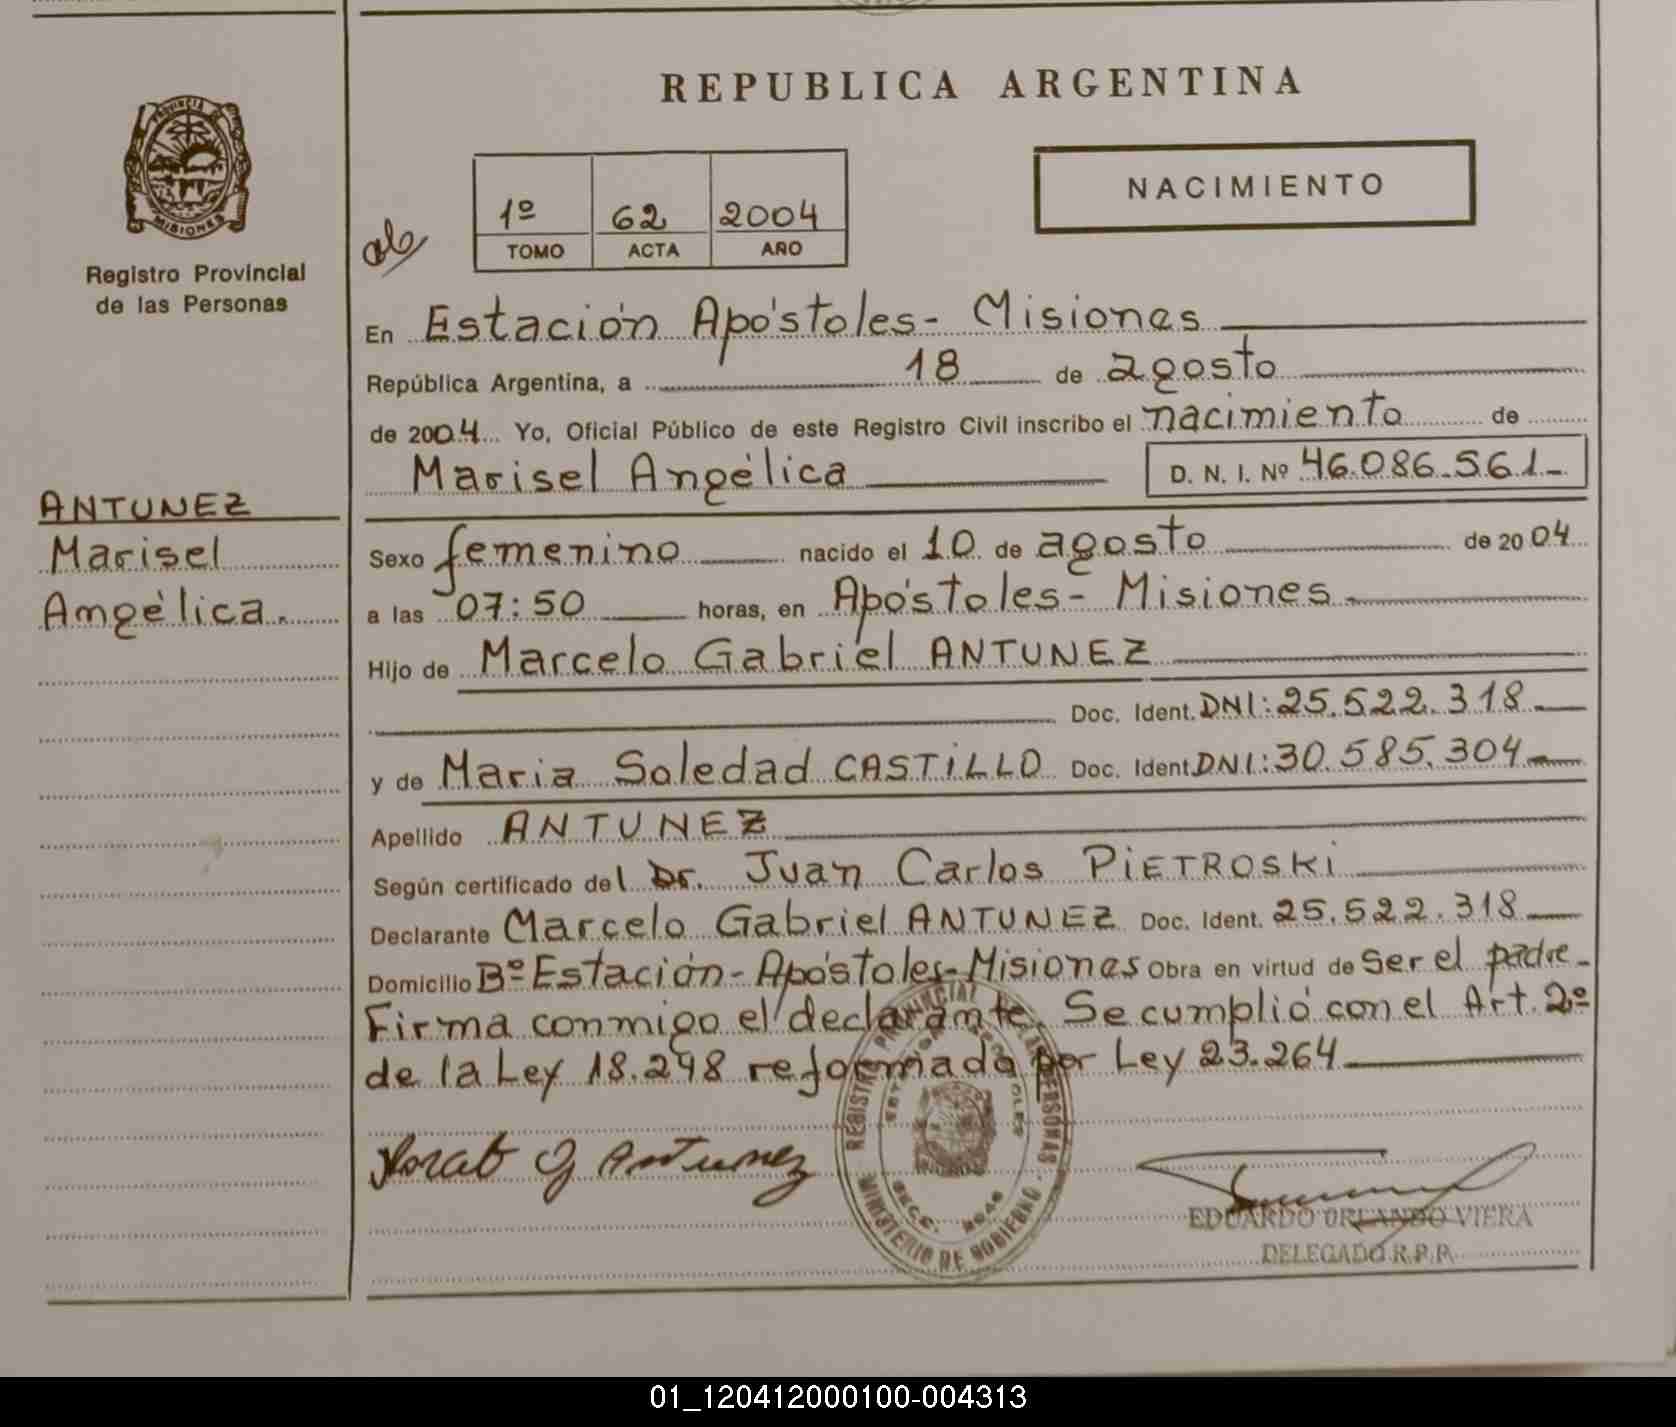 REPUBLICA ARGENTINA
NACIMIENTO
1º 62 2004
TOMO ACTA AÑO
PROVINCIA DE MISIONES
Registro Provincial
de las Personas
En Estación Apóstoles - Misiones
República Argentina, a 18 de agosto
de 2004 Yo, Oficial Público de este Registro Civil inscribo el nacimiento de
Marisel Angélica D. N. I. Nº 46.086.561-
ANTUNEZ
Marisel
Angélica.
Sexo femenino nacido el 10 de agosto de 2004
a las 07:50 horas, en Apóstoles - Misiones
Hijo de Marcelo Gabriel ANTUNEZ
Doc. Ident. DNI: 25.522.318
y de Maria Soledad CASTILLO Doc. Ident. DNI: 30.585.304
Apellido ANTUNEZ
Según certificado del Dr. Juan Carlos PIETROSKI
Declarante Marcelo Gabriel ANTUNEZ Doc. Ident. 25.522.318
Domicilio Bº Estación - Apóstoles - Misiones Obra en virtud de ser el padre -
Firma conmigo el declarante. Se cumplió con el Art. 2º
de la Ley 18.248 reformada por Ley 23.264
REGISTRO PROVINCIAL DE LAS PERSONAS
MINISTERIO DE GOBIERNO
G Antunez
EDUARDO ORLANDO VIERA
DELEGADO R.P.P.
01_120412000100-004313